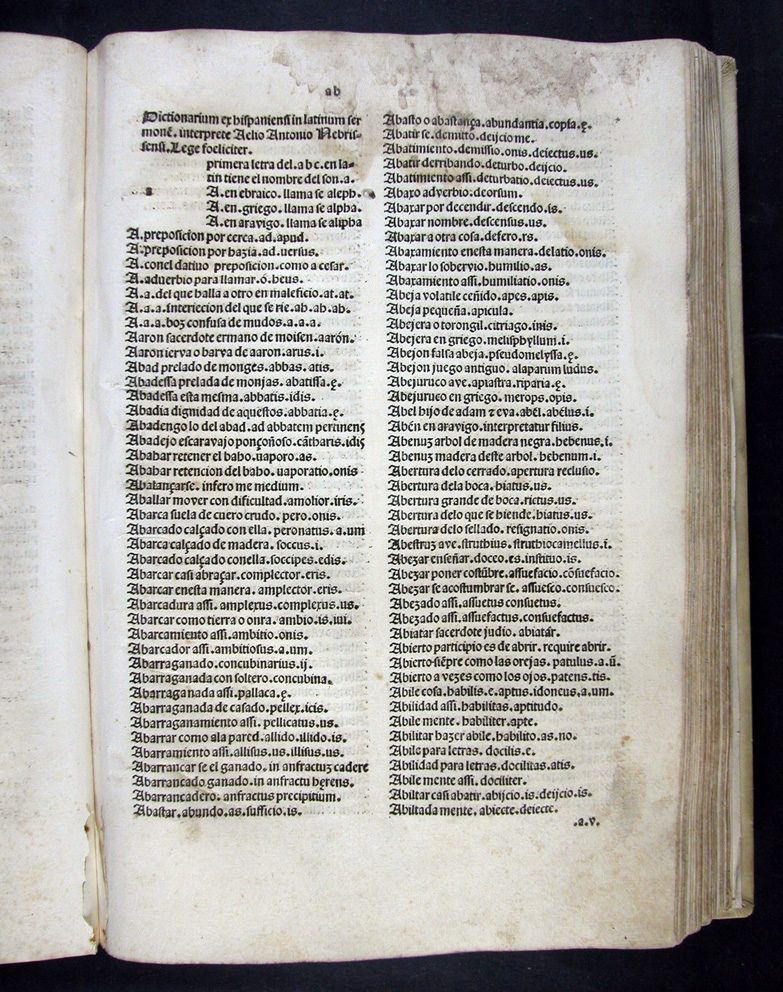 ab
Dictionarium ex hispaniensi in latinum ser
monē. interprete Aelio Antonio Nebris-
sensi. Lege foeliciter.
primera letra del .a b c. en la-
tin tiene el nombre del son .a.
a A. en ebraico. llama se aleph.
A. en griego. llama se alpha.
A. en aravigo. llama se alipha
A. preposicion por cerca. ad. apud.
A. preposicion por hazia. ad. uersus.
A. conel dativo preposicion. como a cesar.
A. adverbio para llamar. ó. heus.
A. a. del que halla a otro en maleficio. at. at.
A. a. a. interiecion del que se rie. ah. ah. ah.
A. a. a. boz confusa de mudos. a. a. a.
Aaron sacerdote ermano de moisen. aarón.
Aaron ierva o barva de aaron. arus. i.
Abad prelado de monges. abbas. atis.
Abadessa prelada de monjas. abatissa. ę.
Abadessa esta mesma. abbatis. idis.
Abadia dignidad de aquestos. abbatia. ę.
Abadengo lo del abad. ad abbatem pertinens
Abadejo escaravajo ponçoñoso. cātharis. idis
Abahar retener el baho. uaporo. as.
Abahar retencion del baho. uaporatio. onis
Abalançarse. infero me medium.
Aballar mover con dificultad. amolior. iris.
Abarca suela de cuero crudo. pero. onis.
Abarcado calçado con ella. peronatus. a. um
Abarca calçado de madera. soccus. i.
Abarcado calçado conella. soccipes. edis.
Abarcar casi abraçar. complector. eris.
Abarcar enesta manera. amplector. eris.
Abarcadura assi. amplexus. complexus. us.
Abarcar como tierra o onra. ambio. is. iui.
Abarcamiento assi. ambitio. onis.
Abarcador assi. ambitiosus. a. um.
Abarraganado. concubinarius. ij.
Abarraganada con soltero. concubina.
Abarraganada assi. pallaca. ę.
Abarraganada de casado. pellex. icis.
Abarraganamiento assi. pellicatus. us.
Abarrar como ala pared. allido. illido. is.
Abarramiento assi. allisus. us. illisus. us.
Abarrancar se el ganado. in anfractus cadere
Abarrancado ganado. in anfractu hęrens.
Abarrancadero. anfractus precipitium.
Abastar. abundo. as. sufficio. is.
Abasto o abastança. abundantia. copia. ę.
Abatir se. demitto. deijcio me.
Abatimiento. demissio. onis. deiectus. us.
Abatir derribando. deturbo. deijcio.
Abatimiento assi. deturbatio. deiectus. us.
Abaxo adverbio. deorsum.
Abaxar por decendir. descendo. is.
Abaxar nombre. descensus. us.
Abaxar a otra cosa. defero. rs.
Abaxamiento enesta manera. delatio. onis.
Abaxar lo sobervio. humilio. as.
Abaxamiento assi. humiliatio. onis.
Abeja volatile ceñido. apes. apis.
Abeja pequeña. apicula.
Abejera o torongil. citriago. inis.
Abejera en griego. melisphyllum. i.
Abejon falsa abeja. pseudomelyssa. ę.
Abejon juego antiguo. alaparum ludus.
Abejuruco ave. apiastra. riparia. ę.
Abejuruco en griego. merops. opis.
Abel hijo de adam τ eva. abēl. abēlus. i.
Abén en aravigo. interpretatur filius.
Abenuz arbol de madera negra. hebenus. i.
Abenuz madera deste arbol. hebenum. i.
Abertura delo cerrado. apertura reclusio.
Abertura dela boca. hiatus. us.
Abertura grande de boca. rictus. us.
Abertura delo que se hiende. hiatus. us.
Abertura delo sellado. resignatio. onis.
Abestruz ave. struthius. struthiocamellus. i.
Abezar enseñar. doceo. es. instituo. is.
Abezar poner costūbre. assuefacio. cōsuefacio.
Abezar se acostumbrar se. assuesco. consuesco.
Abezado assi. assuetus consuetus.
Abezado assi. assuefactus. consuefactus.
Abiatar sacerdote judio. abiatár.
Abierto participio es de abrir. require abrir.
Abierto siēpre como las orejas. patulus. a. ū.
Abierto a vezes como los ojos. patens. tis.
Abile cosa. habilis. e. aptus. idoneus. a. um.
Abilidad assi. habilitas. aptitudo.
Abile mente. habiliter. apte.
Abilitar hazer abile. habilito. as. no.
Abile para letras. docilis. e.
Abilidad para letras. docilitas. atis.
Abile mente assi. dociliter.
Abiltar casi abatir. abijcio. is. deijcio. is.
Abiltada mente. abiecte. deiecte.
.a.v.